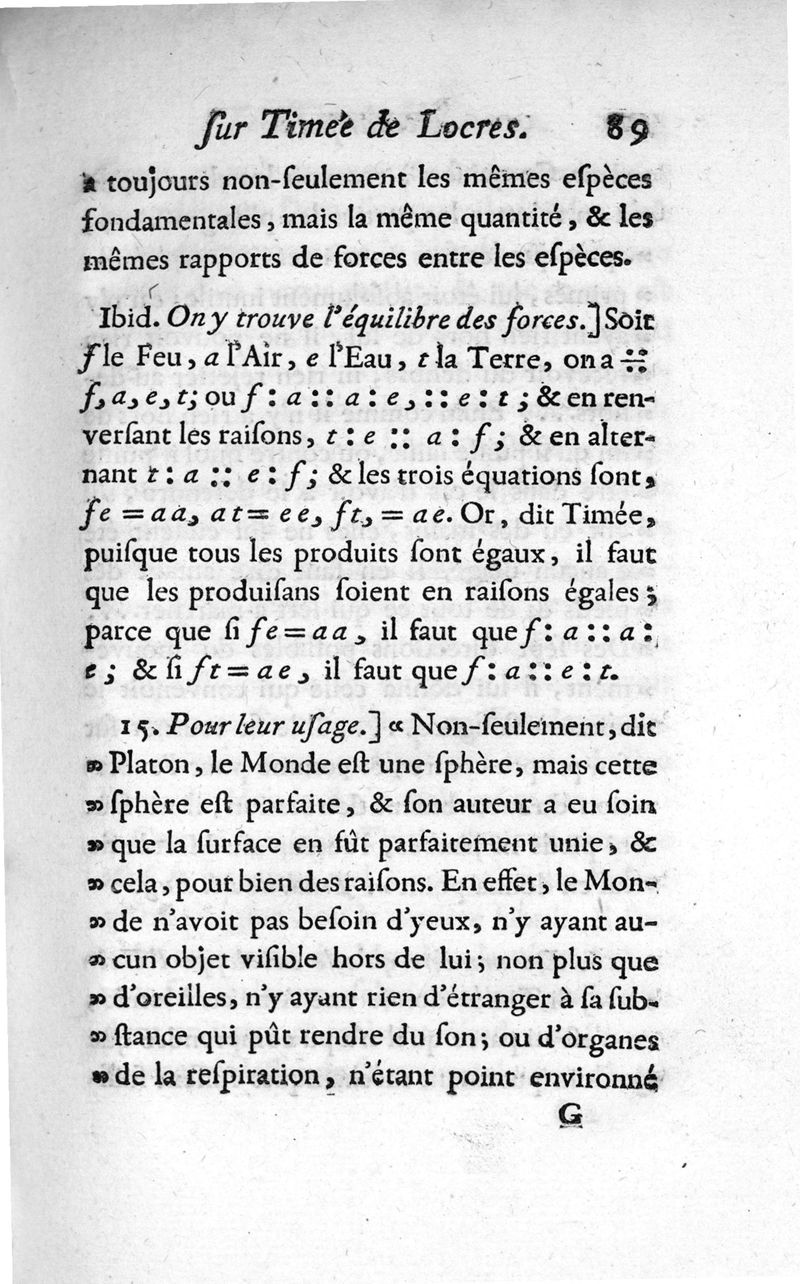 ſur Timée de Locres. 89
a toujours non-ſeulement les mêmes eſpèces
fondamentales, mais la même quantité, & les
mêmes rapports de forces entre les eſpèces.
Ibid. On y trouve l'équilibre des forces.] Soit
f le Feu, a l'Air, e l'Eau, t la Terre, on a ∺
f, a, e, t; ou f : a :: a : e, :: e : t ; & en ren-
verſant les raiſons, t : e :: a : f ; & en alter-
nant t : a :: e : f ; & les trois équations ſont,
fe = aa, at = ee, ft, = ae. Or, dit Timée,
puiſque tous les produits ſont égaux, il faut
que les produiſans ſoient en raiſons égales ;
parce que ſi fe = aa, il faut que f : a :: a :
e ; & ſi ft = ae, il faut que f : a :: e : t.
15. Pour leur uſage.] « Non-ſeulement, dit
» Platon, le Monde eſt une ſphère, mais cette
» ſphère eſt parfaite, & ſon auteur a eu ſoin
» que la ſurface en fût parfaitement unie, &
» cela, pour bien des raiſons. En effet, le Mon-
» de n'avoit pas beſoin d'yeux, n'y ayant au-
» cun objet viſible hors de lui ; non plus que
» d'oreilles, n'y ayant rien d'étranger à ſa ſub-
» ſtance qui pût rendre du ſon ; ou d'organes
» de la reſpiration, n'étant point environné
G